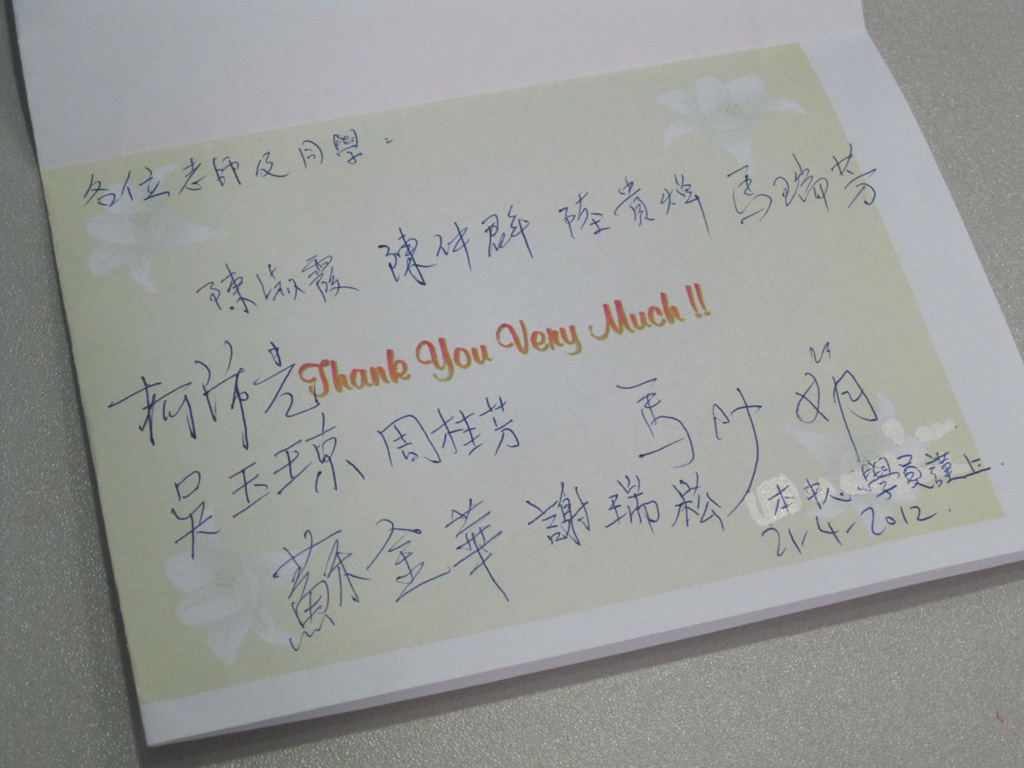 各位老師及同學：
陳淑霞 陳仲群 陸貴 馬瑞芬
Thank You Very Much !!
柯
吳玉瓊 周桂芳 馬少娟
蘇金華 謝瑞崧
本 學員謹上
21-4-2012.